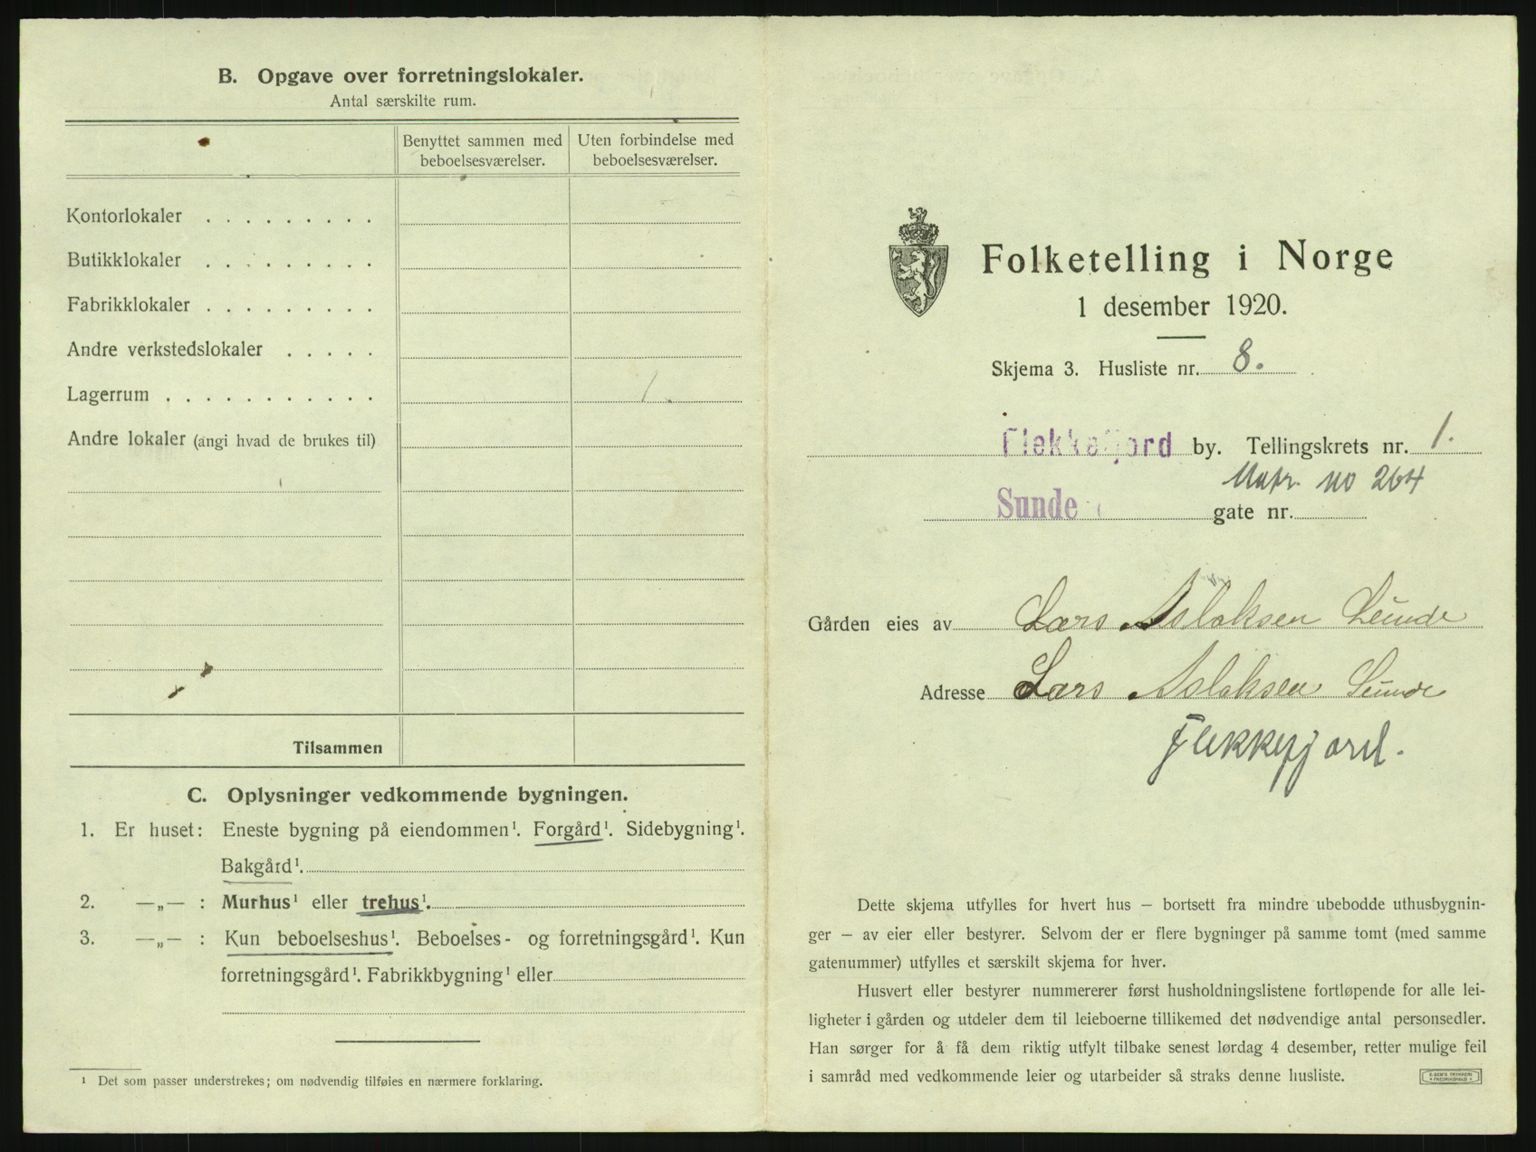 B. Opgave over forretningslokaler.
Antal særskilte rum.
Benyttet sammen med beboelsesværelser.
Uten forbindelse med beboelsesværelser.
Kontorlokaler . . . . . . . . .
Butikklokaler . . . . . . . . .
Fabrikklokaler . . . . . . . . .
Andre verkstedslokaler . . . . .
Lagerrum . . . . . . . . . . . 1.
Andre lokaler (angi hvad de brukes til)
Tilsammen
C. Oplysninger vedkommende bygningen.
1. Er huset: Eneste bygning på eiendommen¹. Forgård¹. Sidebygning¹.
Bakgård¹.
2. —„— : Murhus¹ eller trehus¹.
3. —„— : Kun beboelseshus¹. Beboelses- og forretningsgård¹. Kun
forretningsgård¹. Fabrikkbygning¹ eller
¹ Det som passer understrekes; om nødvendig tilføies en nærmere forklaring.
Folketelling i Norge
1 desember 1920.
Skjema 3. Husliste nr. 8.
Flekkefjord by. Tellingskrets nr. 1.
Matr. no 264
Sunde gate nr.
Gården eies av Lars Aslaksen Sunde
Adresse Lars Aslaksen Sunde
Flekkefjord.
Dette skjema utfylles for hvert hus — bortsett fra mindre ubebodde uthusbygnin-
ger — av eier eller bestyrer. Selvom der er flere bygninger på samme tomt (med samme
gatenummer) utfylles et særskilt skjema for hver.
Husvert eller bestyrer nummererer først husholdningslistene fortløpende for alle lei-
ligheter i gården og utdeler dem til leieboerne tillikemed det nødvendige antal personsedler.
Han sørger for å få dem riktig utfylt tilbake senest lørdag 4 desember, retter mulige feil
i samråd med vedkommende leier og utarbeider så straks denne husliste.